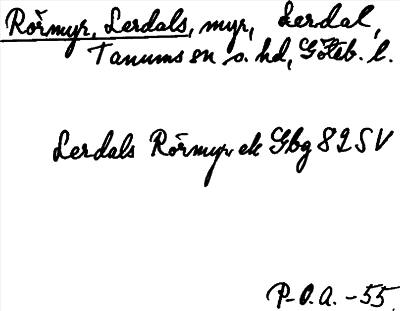 Rörmyr, Lerdals, myr, Lerdal,
Tanums sn o. hd, Göteb. l.
Lerdals Rörmyr ek Gbg 82 SV
P-O.A. -55.